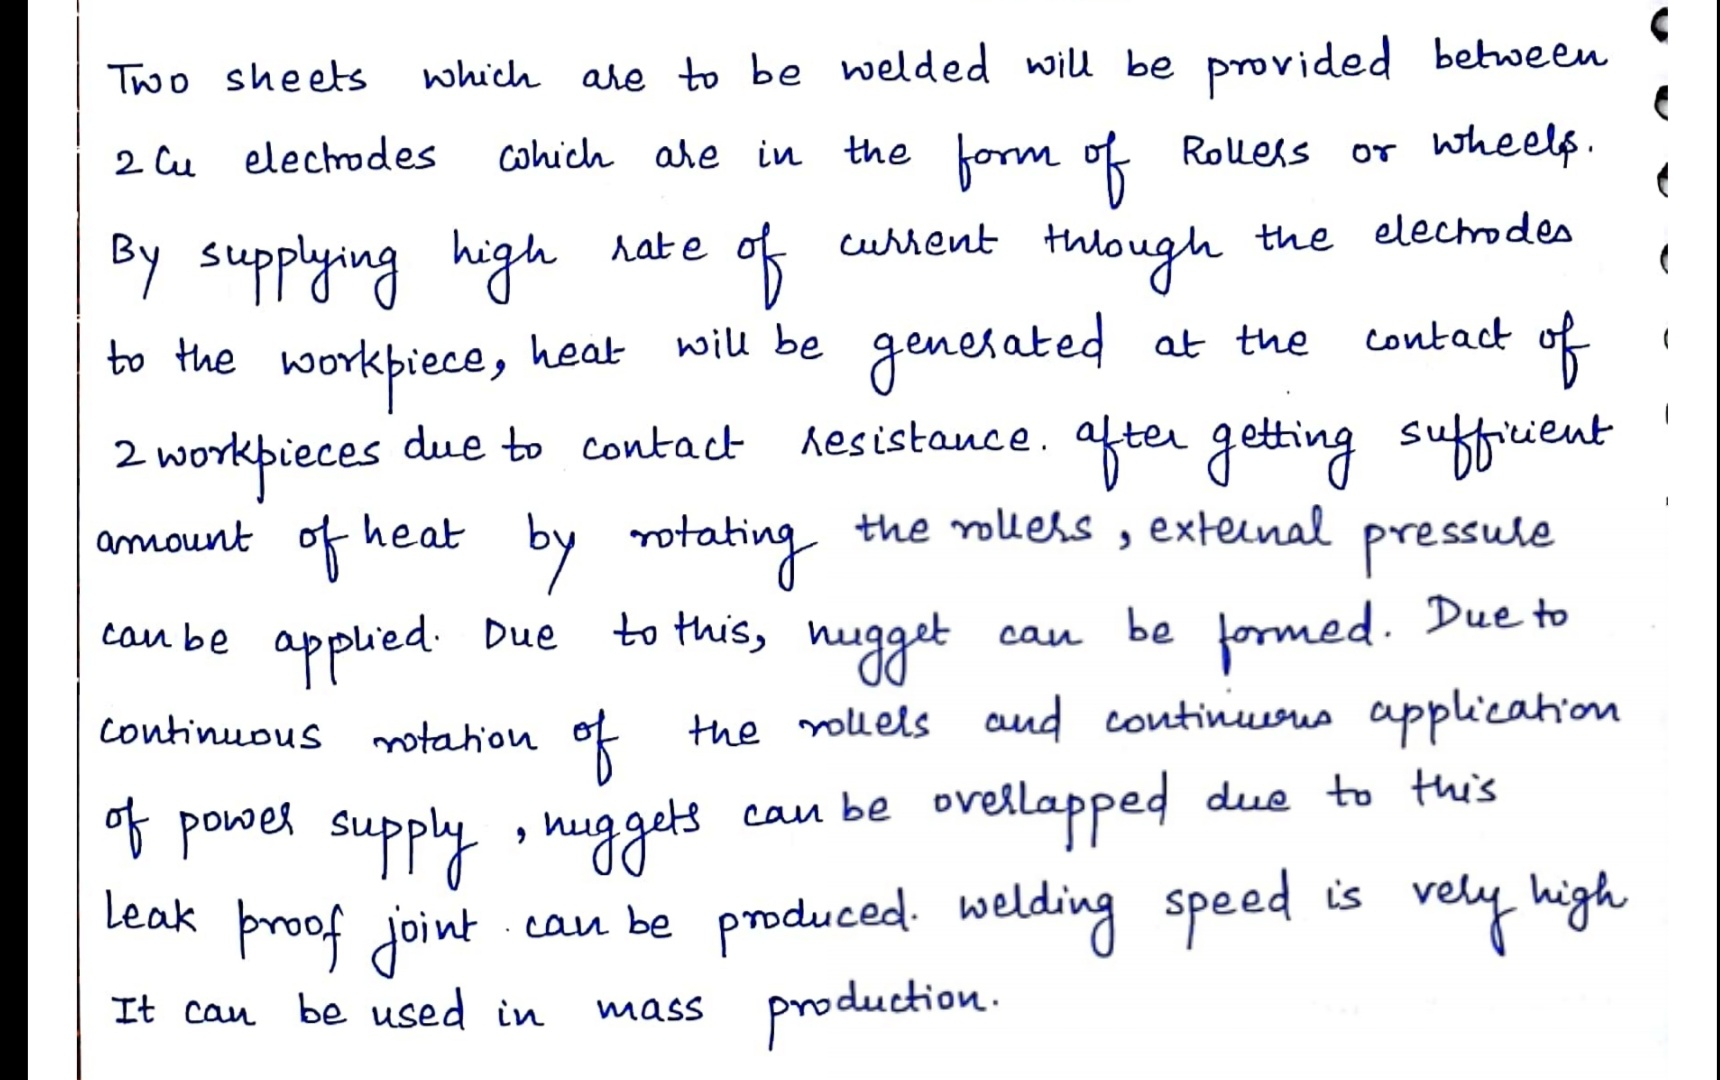 Two sheets which are to be welded will be provided between
2 Cu electrodes which are in the form of Rollers or wheels.
By supplying high rate of current through the electrodes
to the workpiece, heat will be generated at the contact of
2 workpieces due to contact resistance. after getting sufficient
amount of heat by rotating the rollers, external pressure
can be applied. Due to this, nugget can be formed. Due to
continuous rotation of the rollers and continuous application
of power supply, nuggets can be overlapped due to this
Leak proof joint can be produced. welding speed is very high
It can be used in mass production.